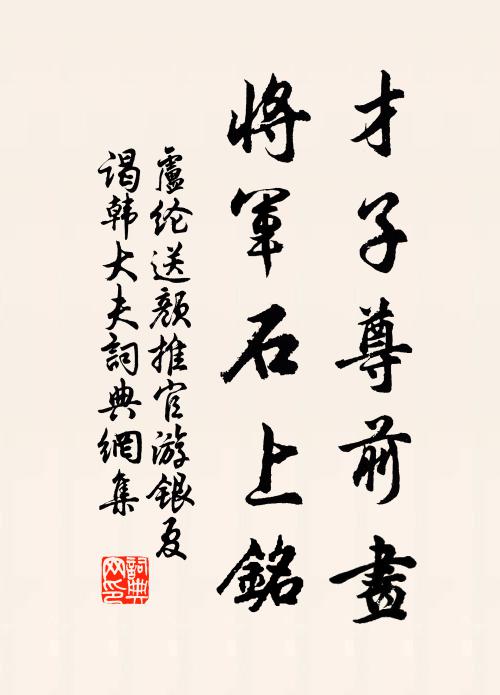 才子尊前畫
將軍石上銘
盧纶送顏推官游銀夏
谒韩大夫詞典網集
詞典
网印